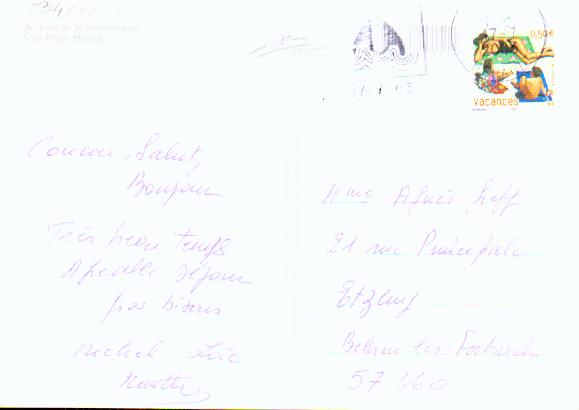 Au bord de la méditerranée
Vias Plage (Hérault)
0,50 €
vacances
Coucou, Salut,
Bonjour
Très beau temps
Agréable séjour
gros bisous
Michel Loïc
Mme Agnès
21 rue Principale
Etzling
Behren-les-Forbach
57460